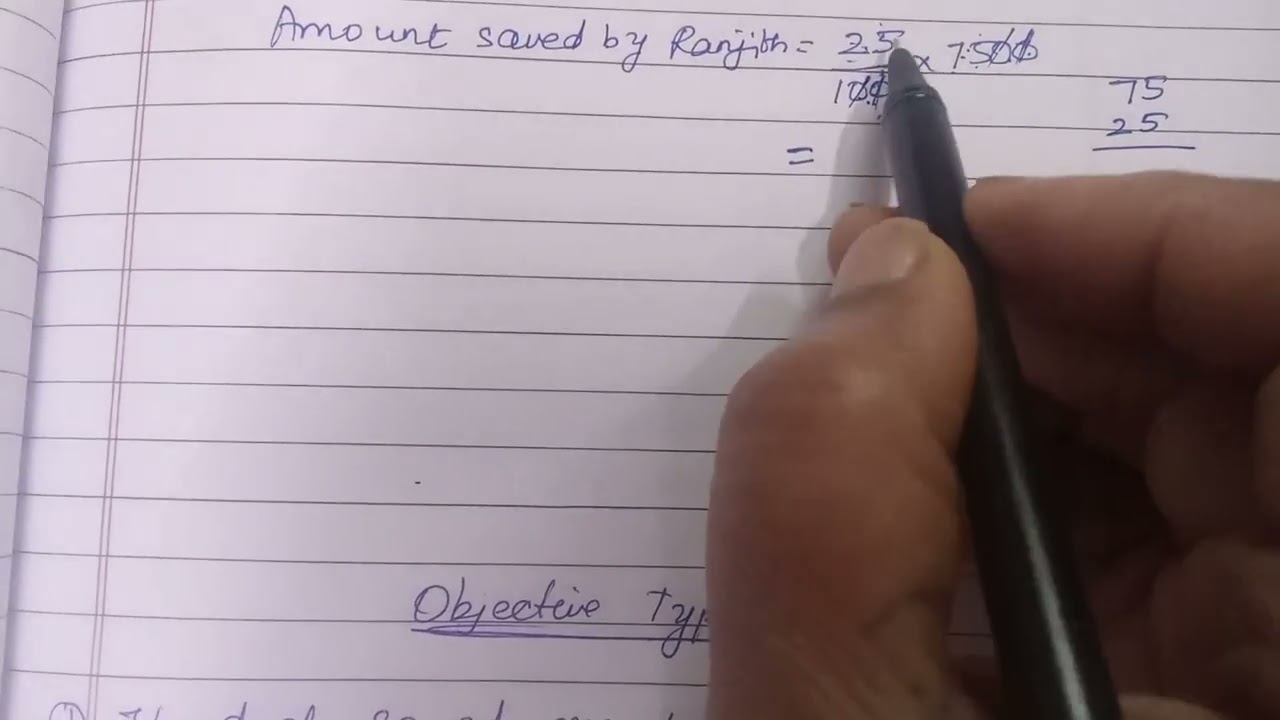 Amount saved by Ranjith = 2.5/100 × 7500
75
25
=
Objective Typ